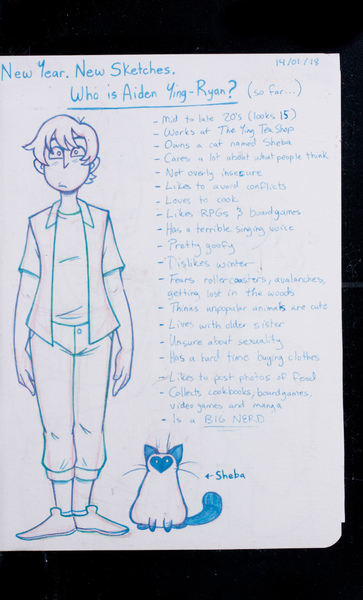 14/01/18
New Year. New Sketches.
Who is Aiden Ying-Ryan? (so far...)
- Mid to late 20's (looks 15)
- Works at The Ying Tea Shop
- Owns a cat named Sheba
- Cares a lot about what people think
- Not overly insecure
- Likes to avoid conflicts
- Loves to cook
- Likes RPGs & boardgames
- Has a terrible singing voice
- Pretty goofy
- Dislikes winter
- Fears rollercoasters, avalanches,
getting lost in the woods
- Thinks unpopular animals are cute
- Lives with older sister
- Unsure about sexuality
- Has a hard time buying clothes
- Likes to post photos of food
- Collects cookbooks, boardgames,
video games and manga
- Is a BIG NERD
← Sheba